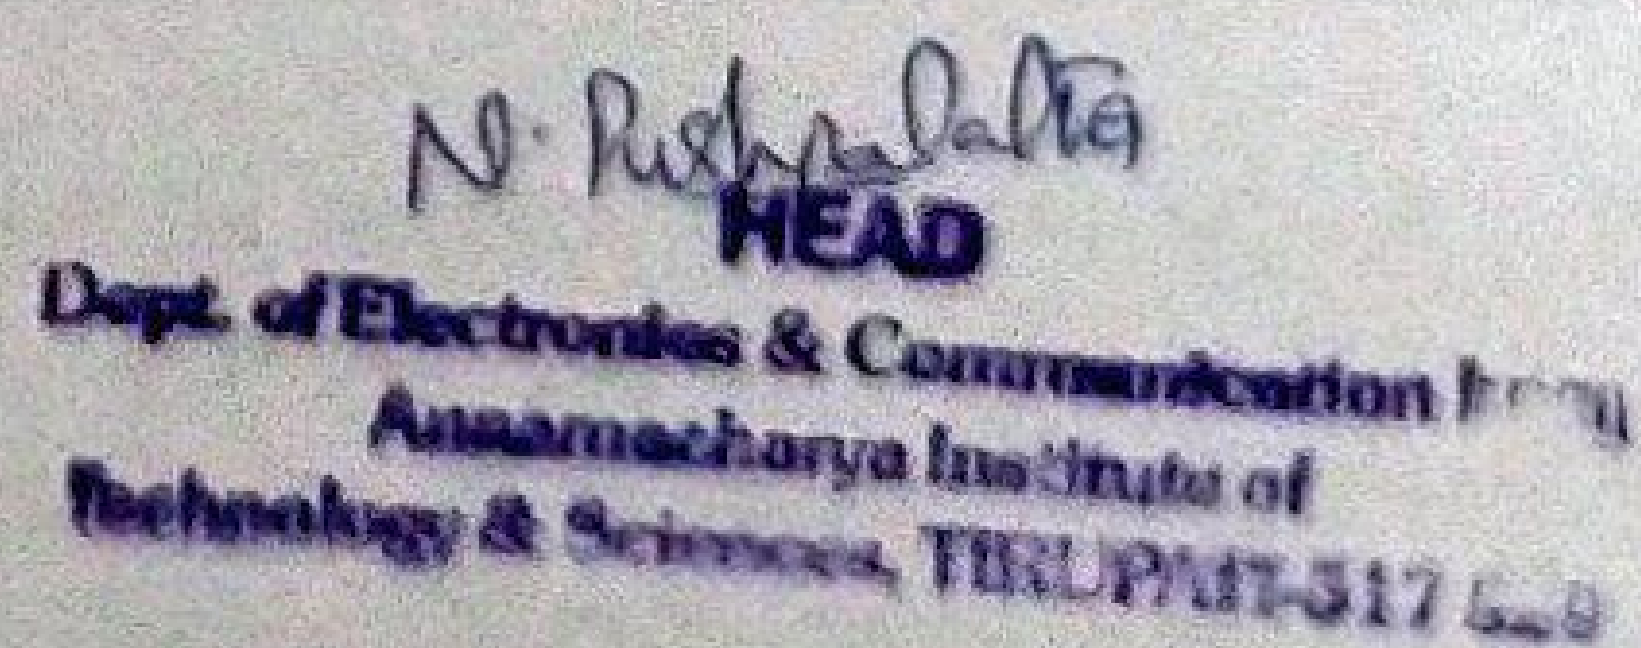 N. Pushpalatha
HEAD
Dept. of Electronics & Communication
Annamacharya Institute of
Technology & Sciences, TIRUPATI-517